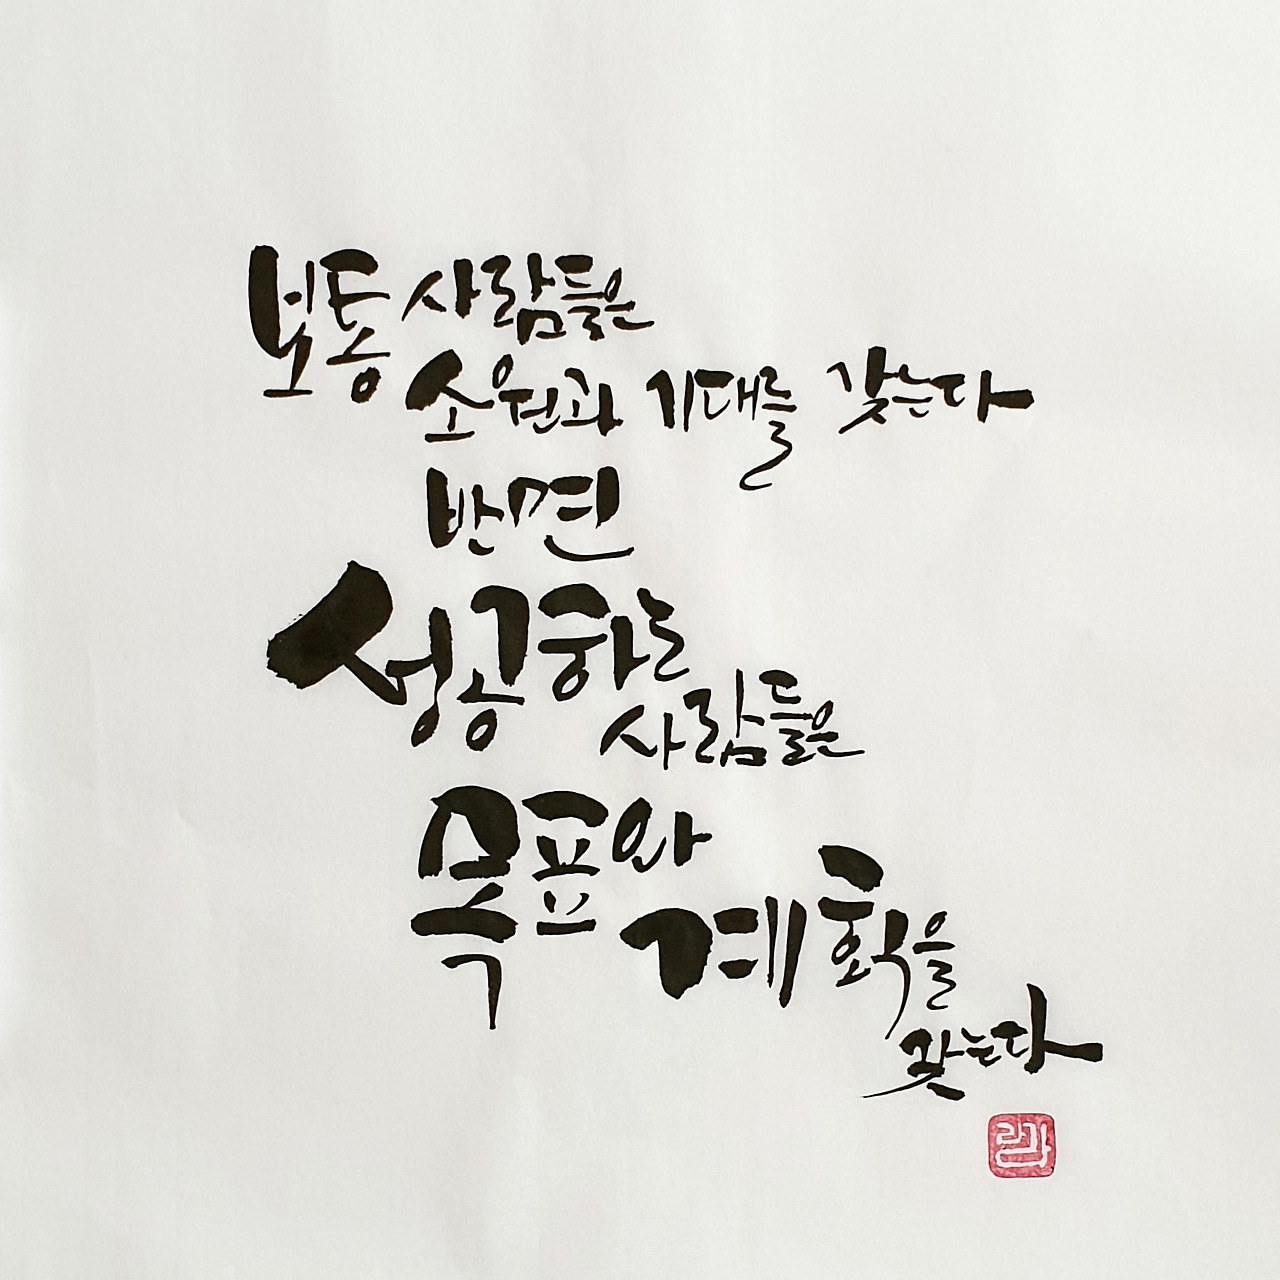 보통 사람들은
소원과 기대를 갖는다
반면
성공하는
사람들은
목표와
계획을
갖는다